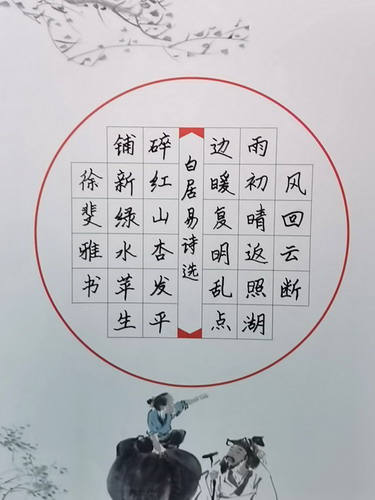 风回云断
雨初晴返照湖
边暖复明乱点
白居易诗选
碎红山杏发平
铺新绿水苹生
徐斐雅书